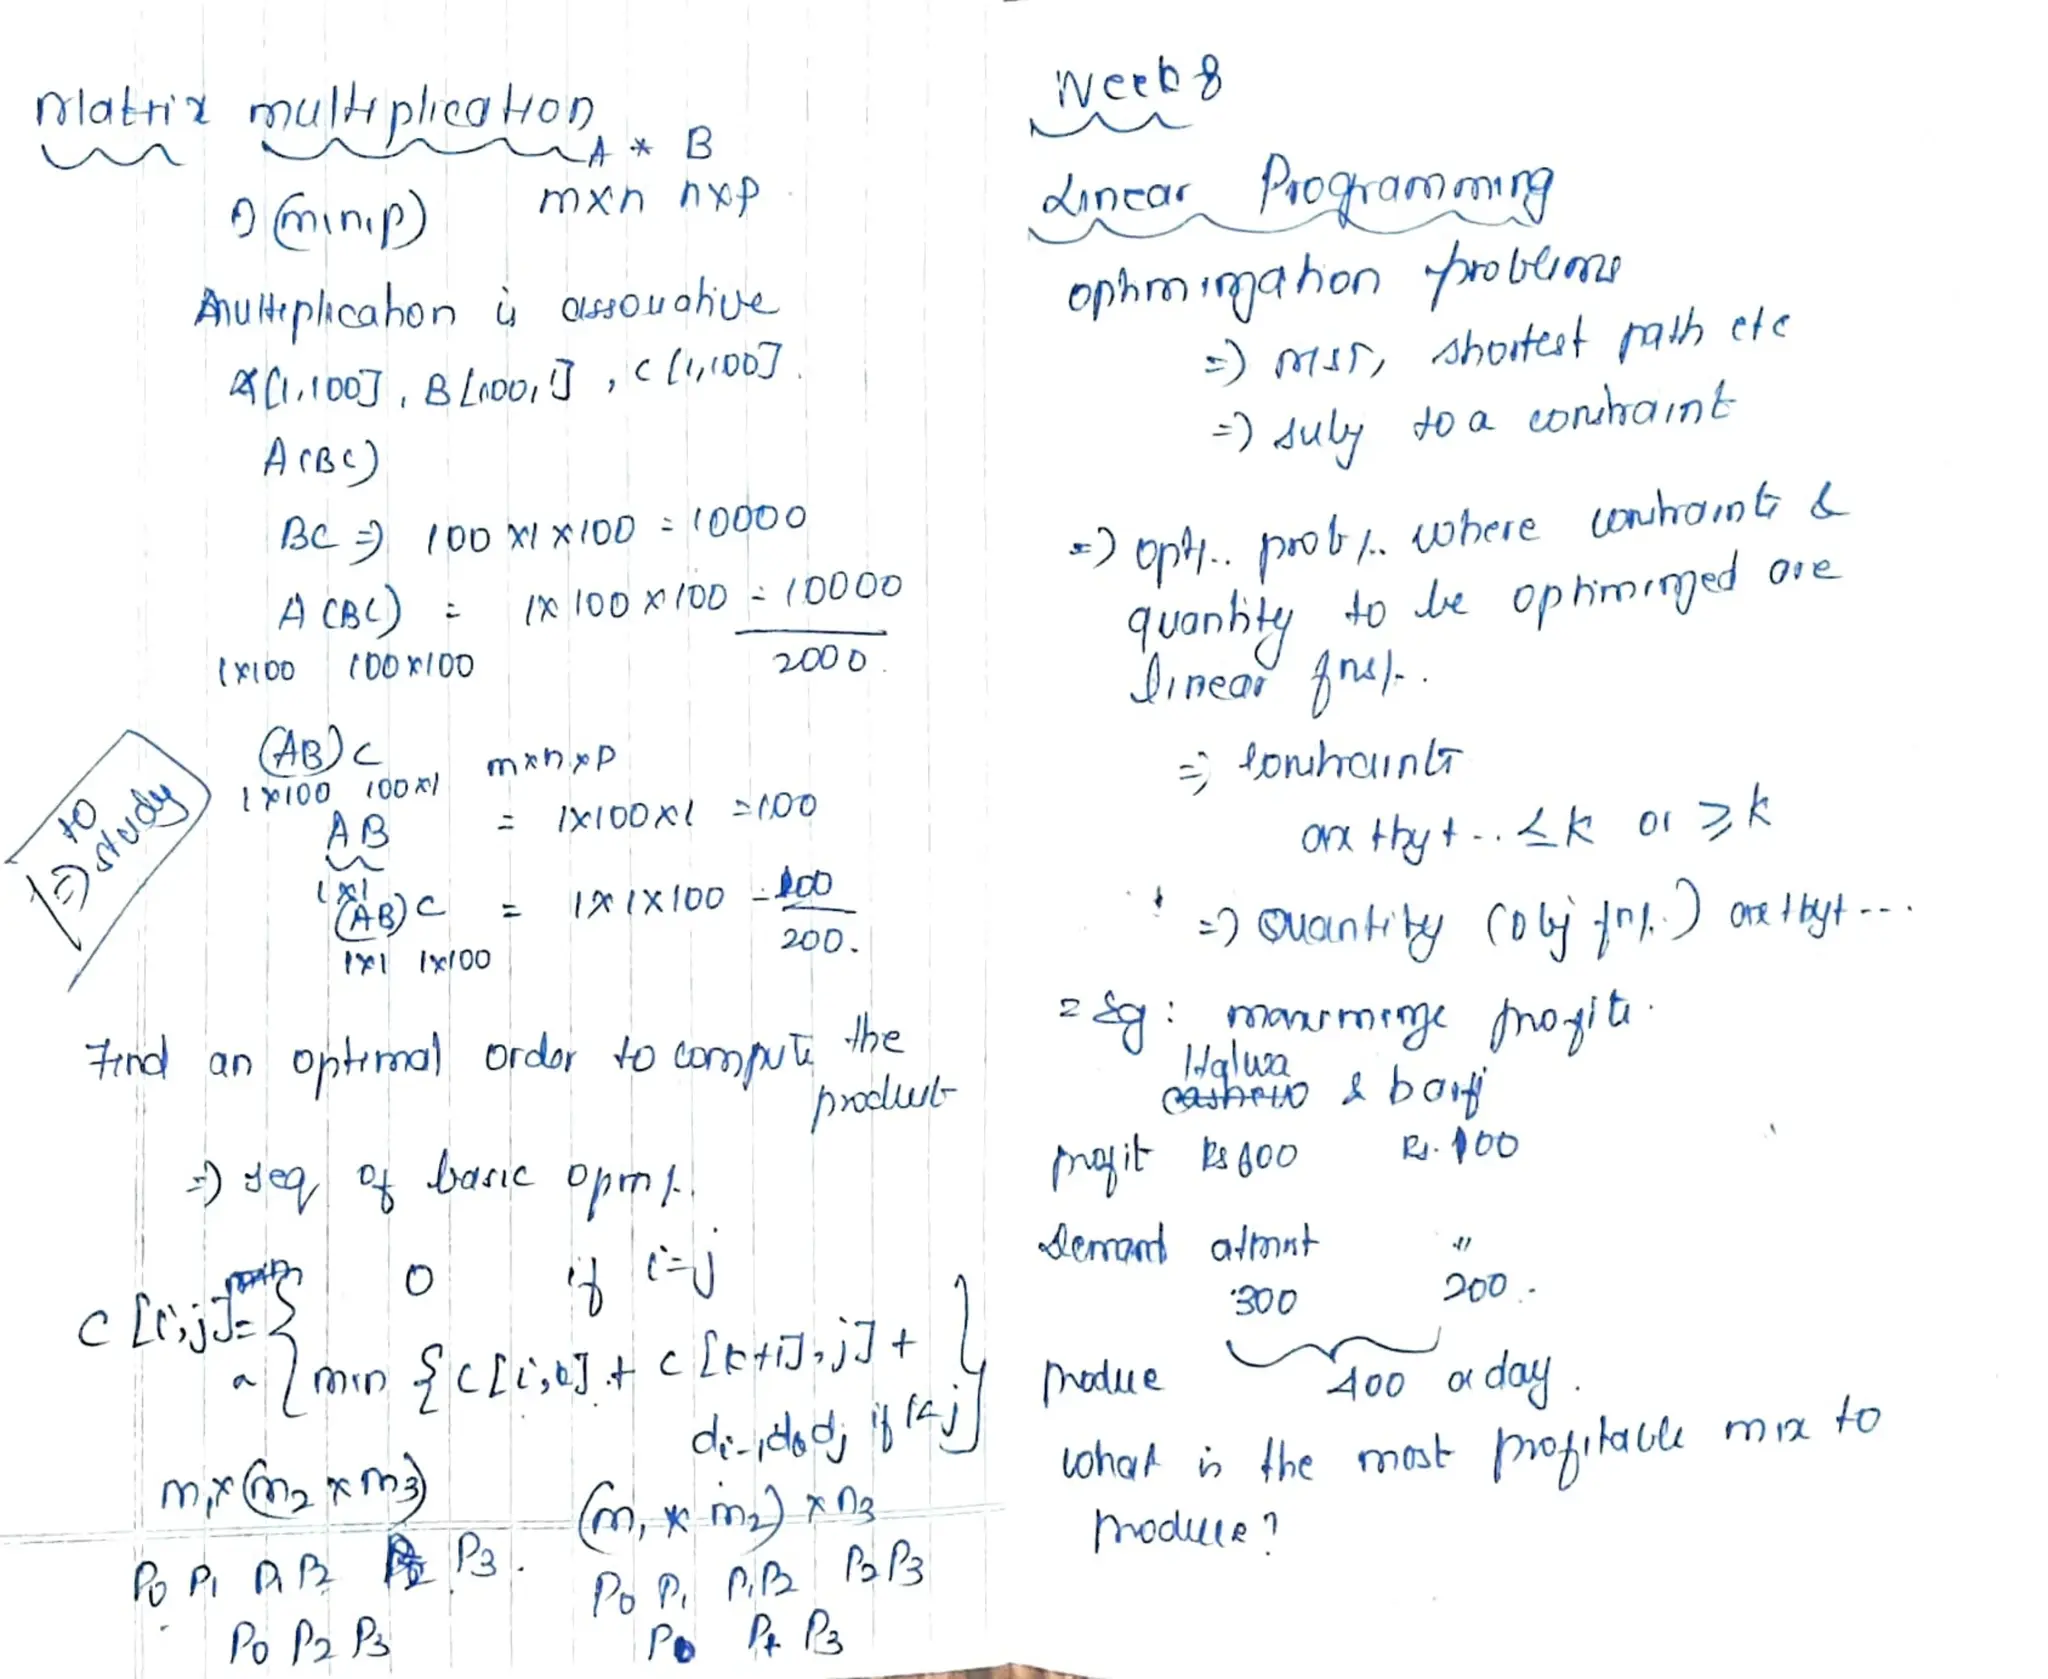 Matrix multiplication
A * B
O(m,n,p) mxn nxp
Multiplication is associative
A[1,100], B[100,1], C[1,100].
A(BC)
BC => 100 x1 x100 = 10000
A (BC) = 1x 100 x 100 = 10000
1x100 100x100 2000.
(AB) C mxnxp
1x100 100x1
AB = 1x100x1 = 100
1x1
(AB) C = 1x1x100 = 100
1x1 1x100 200.
to
=> study
Find an optimal order to compute the
product
=> seq of basic oprn/.
C [i,j] = 0 if i=j
min { C[i,k] + C [k+1], j] +
di-1dkdj if i<j }
m1x(m2 x m3)
(m1 x m2) x m3
P0 P1 P1 P2 P3.
P0 P1 P1P2 P2P3
P0 P2 P3
P0 P3
Week 8
Linear Programming
optimization problems
=> MST, shortest path etc
=> subj to a constraint
=> opt/.. prob/.. where constraints &
quantity to be optimized are
linear fns/..
=> constraints
ax+by+... ≤ k or ≥ k
=> Quantity (obj fn/.) ax+by+...
= Eg: maximize profits.
Halwa
& barfi
profit Rs 600 Rs. 100
Demand atmost "
300 200.
produce 400 a day.
what is the most profitable mix to
produce?